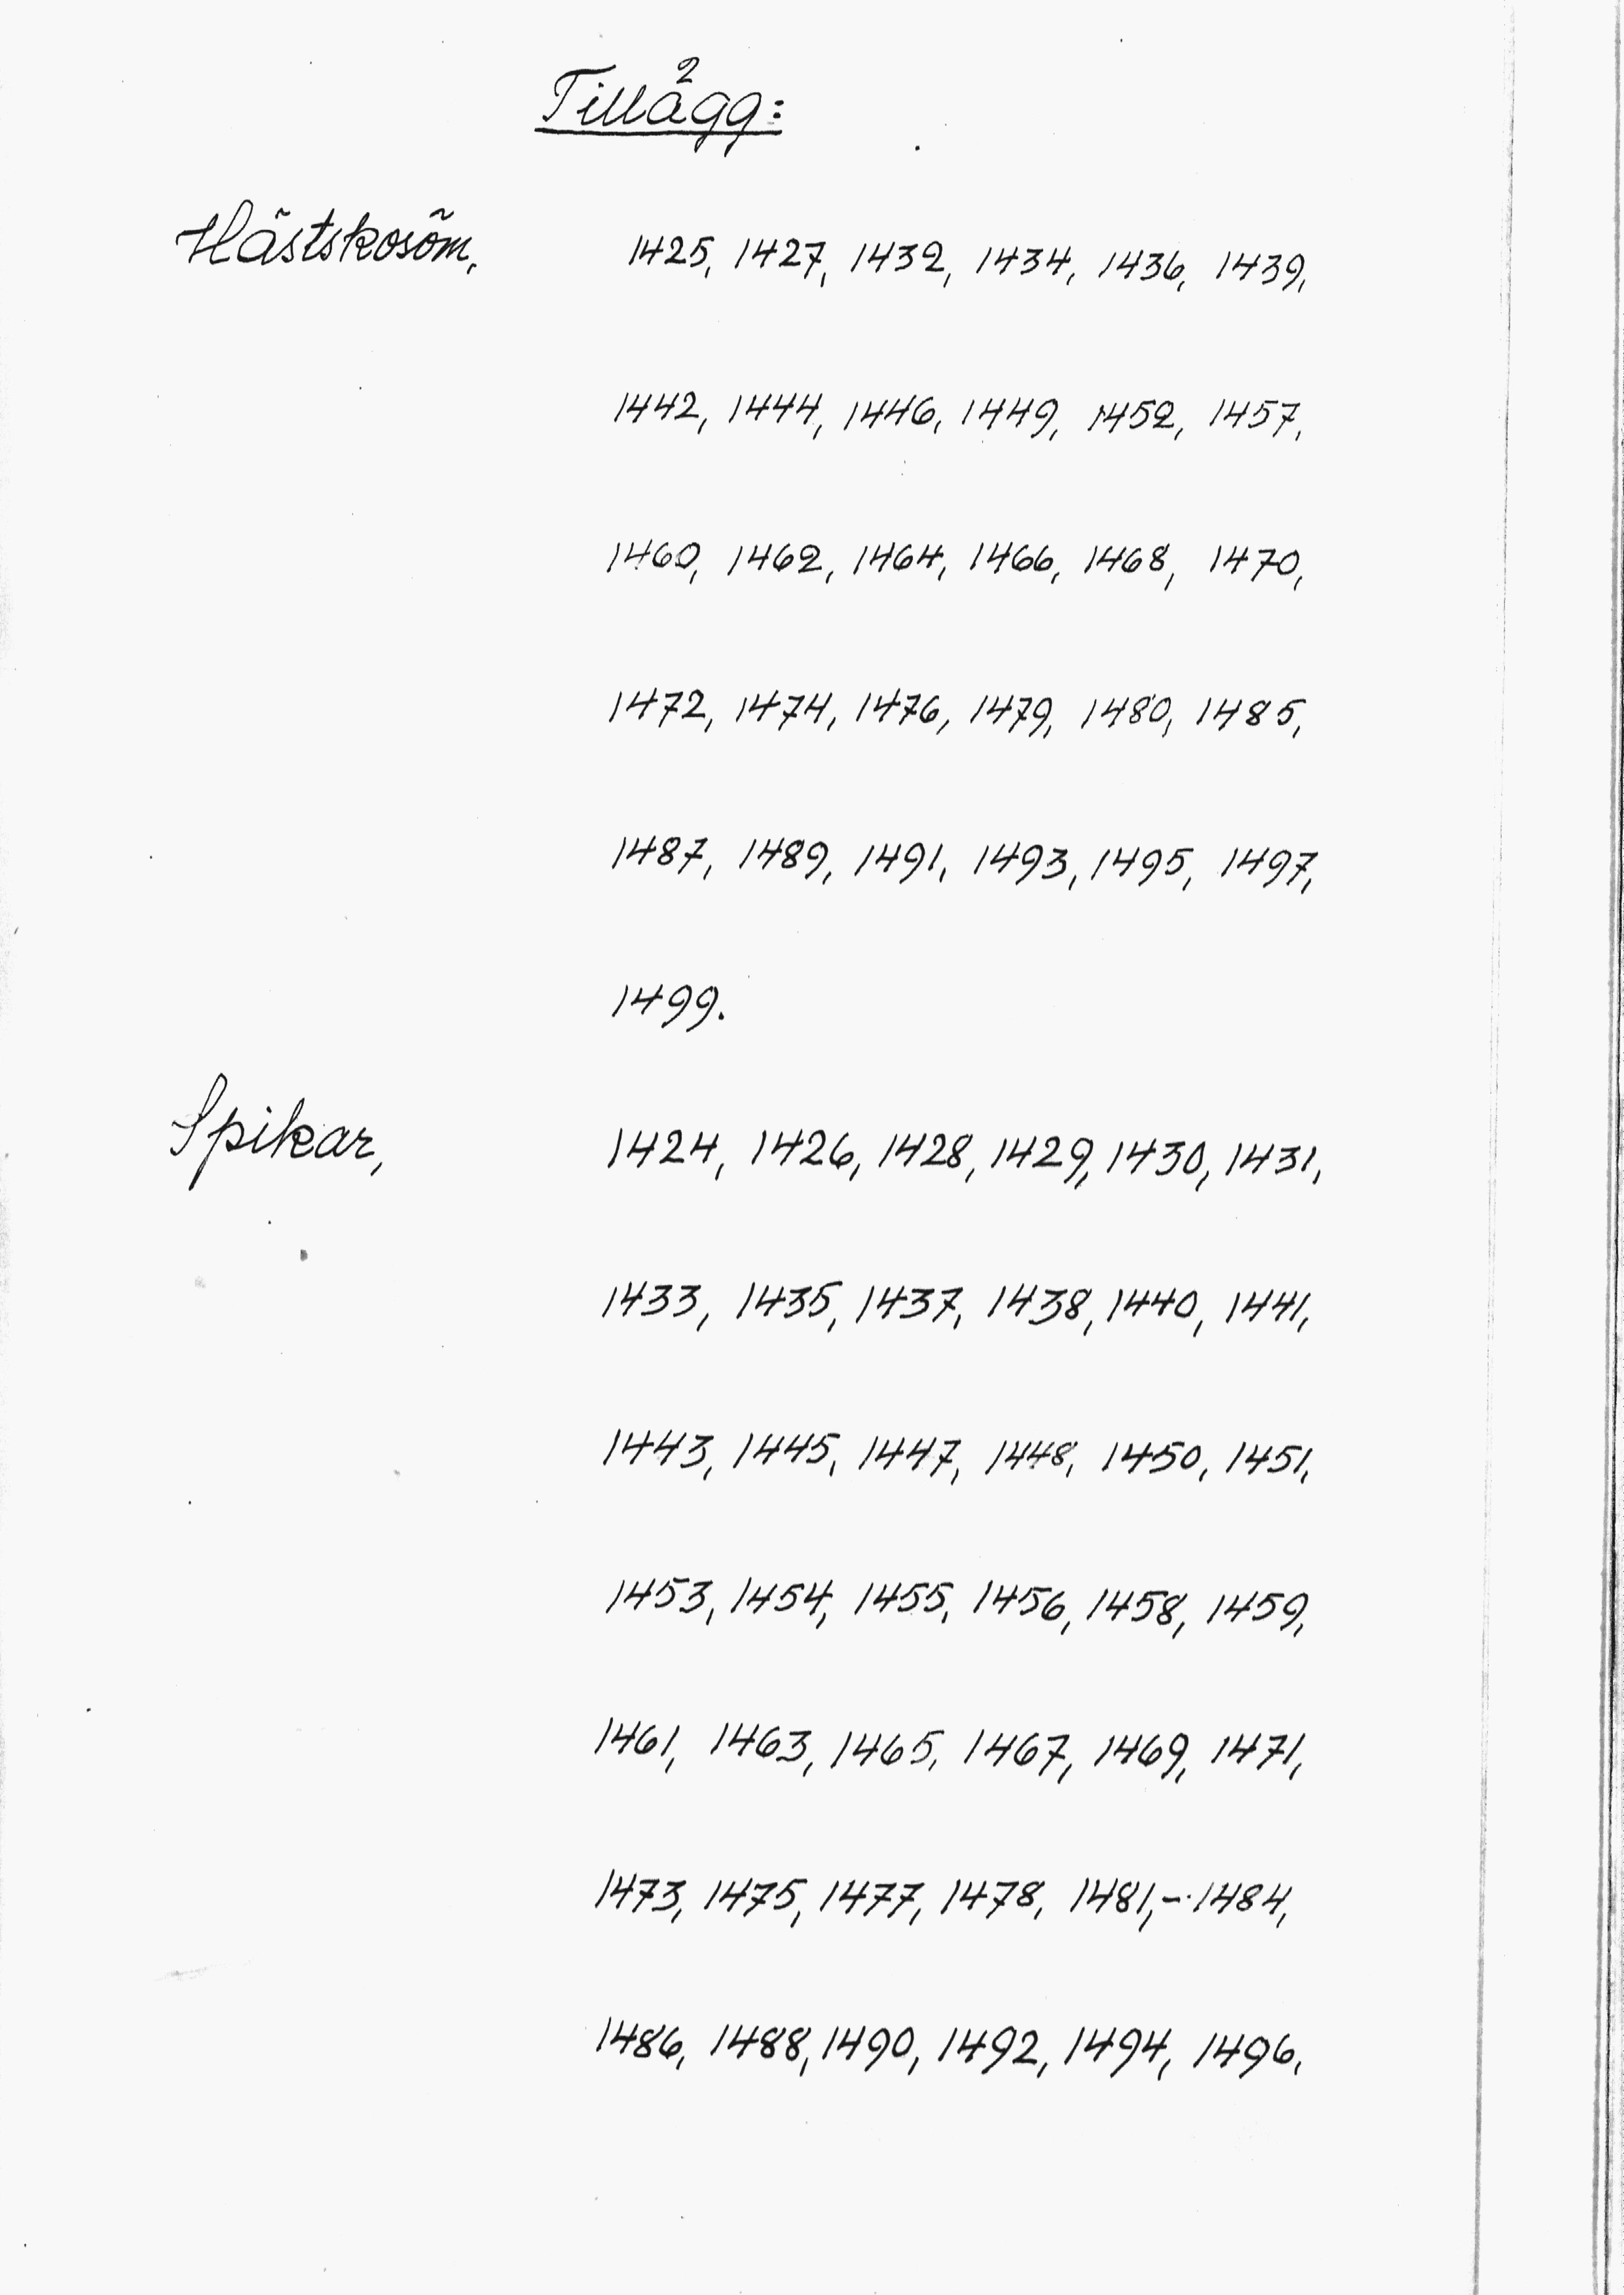 2
Tillägg:
Hästskosöm, 1425, 1427, 1432, 1434, 1436, 1439,
1442, 1444, 1446, 1449, 1452, 1457,
1460, 1462, 1464, 1466, 1468, 1470,
1472, 1474, 1476, 1479, 1480, 1485,
1487, 1489, 1491, 1493, 1495, 1497,
1499.
Spikar, 1424, 1426, 1428, 1429, 1430, 1431,
1433, 1435, 1437, 1438, 1440, 1441,
1443, 1445, 1447, 1448, 1450, 1451,
1453, 1454, 1455, 1456, 1458, 1459,
1461, 1463, 1465, 1467, 1469, 1471,
1473, 1475, 1477, 1478, 1481,-1484,
1486, 1488, 1490, 1492, 1494, 1496,